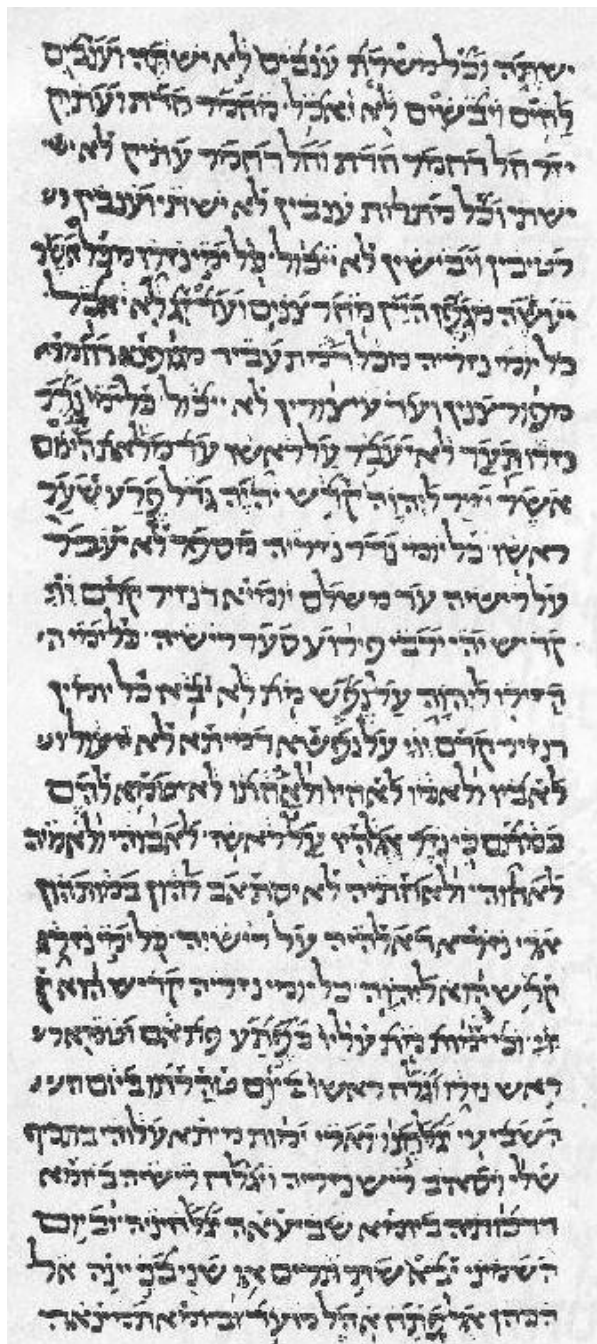 ישתה וכל משרת ענבים לא ישתה וענבים
לחים ויבשים לא יאכל מחמר חדת ועתיק
יזר חל דחמר חדת וחל דחמר עתיק לא יש
ישתי וכל מתרות ענבין לא ישתי וענבין
רטיבין ויבישין לא ייכול כל ימי נזרו מכל אשר
ייעשה מגפן היין מחרצנים ועד זג לא יאכל
כל יומי נזריה מכל דמתעביד מגופנא דחמרא
מפורצנין ועד עיצורין לא ייכול כל ימי נדר
נזרו תער לא יעבר על ראשו עד מלאת הימם
אשר יזיר ליהוה קדש יהיה גדל פרע שער
ראשו כל יומי נדר נזריה מספר לא יעבר
על רישיה עד משלם יומיא דנזיר קדם ייי
קדיש יהי ירבי פירוע סער רישיה כל ימי ה
הזירו ליהוה על נפש מת לא יבא כל יומין
דנזיר קדם ייי על נפשא דמיתא לא ייעול
לאביו ולאמו לאחיו ולאחתו לא יטמא להם
במתם כי נזר אלהיו על ראשו לאבוהי ולאמיה
לאחוהי ולאחתיה לא יסתאב להון במותהון
ארי נזרא דאלהיה על רישיה כל ימי נזרו
קדש הוא ליהוה כל יומי נזריה קדיש הוא ק
ייי וכי ימות מת עליו בפתע פתאם וטמא
ראש נזרו וגלח ראשו ביום טהרתו ביום
השביעי יגלחנו וארי ימות מיתא עלוהי בתכיף
שלו ויסאב ריש נזריה ויגלח רישיה ביומא
דדכותה ביומא שביעאה יגלחיניה וביום
השמיני יבא שתי תרים או שני בני יונה אל
הכהן אל פתח אהל מועד וביומא תמינאה